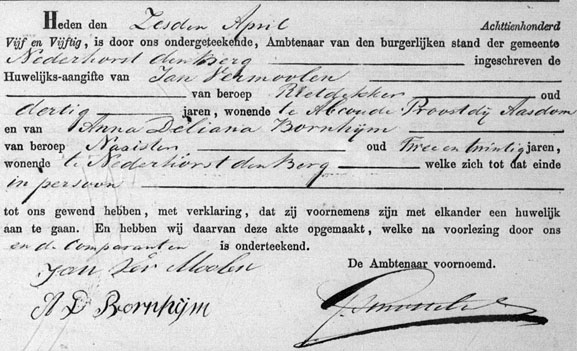 Heden den Zesden April Achttienhonderd
Vijf en Vijftig, is door ons ondergeteekende, Ambtenaar van den burgerlijken stand der gemeente
Nederhorst den Berg ingeschreven de
Huwelijks-aangifte van Jan Vermoolen
van beroep Rietdekker oud
dertig jaren, wonende te Abcoude Proostdij Aasdom
en van Anna Deliana Bornhijm
van beroep Naaister oud Twee en twintig jaren,
wonende te Nederhorst den Berg welke zich tot dat einde
in persoon
tot ons gewend hebben, met verklaring, dat zij voornemens zijn met elkander een huwelijk
aan te gaan. En hebben wij daarvan deze akte opgemaakt, welke na voorlezing door ons
en de Comparanten is onderteekend.
Jan Ver Moolen
De Ambtenaar voornoemd.
A D Bornhijm